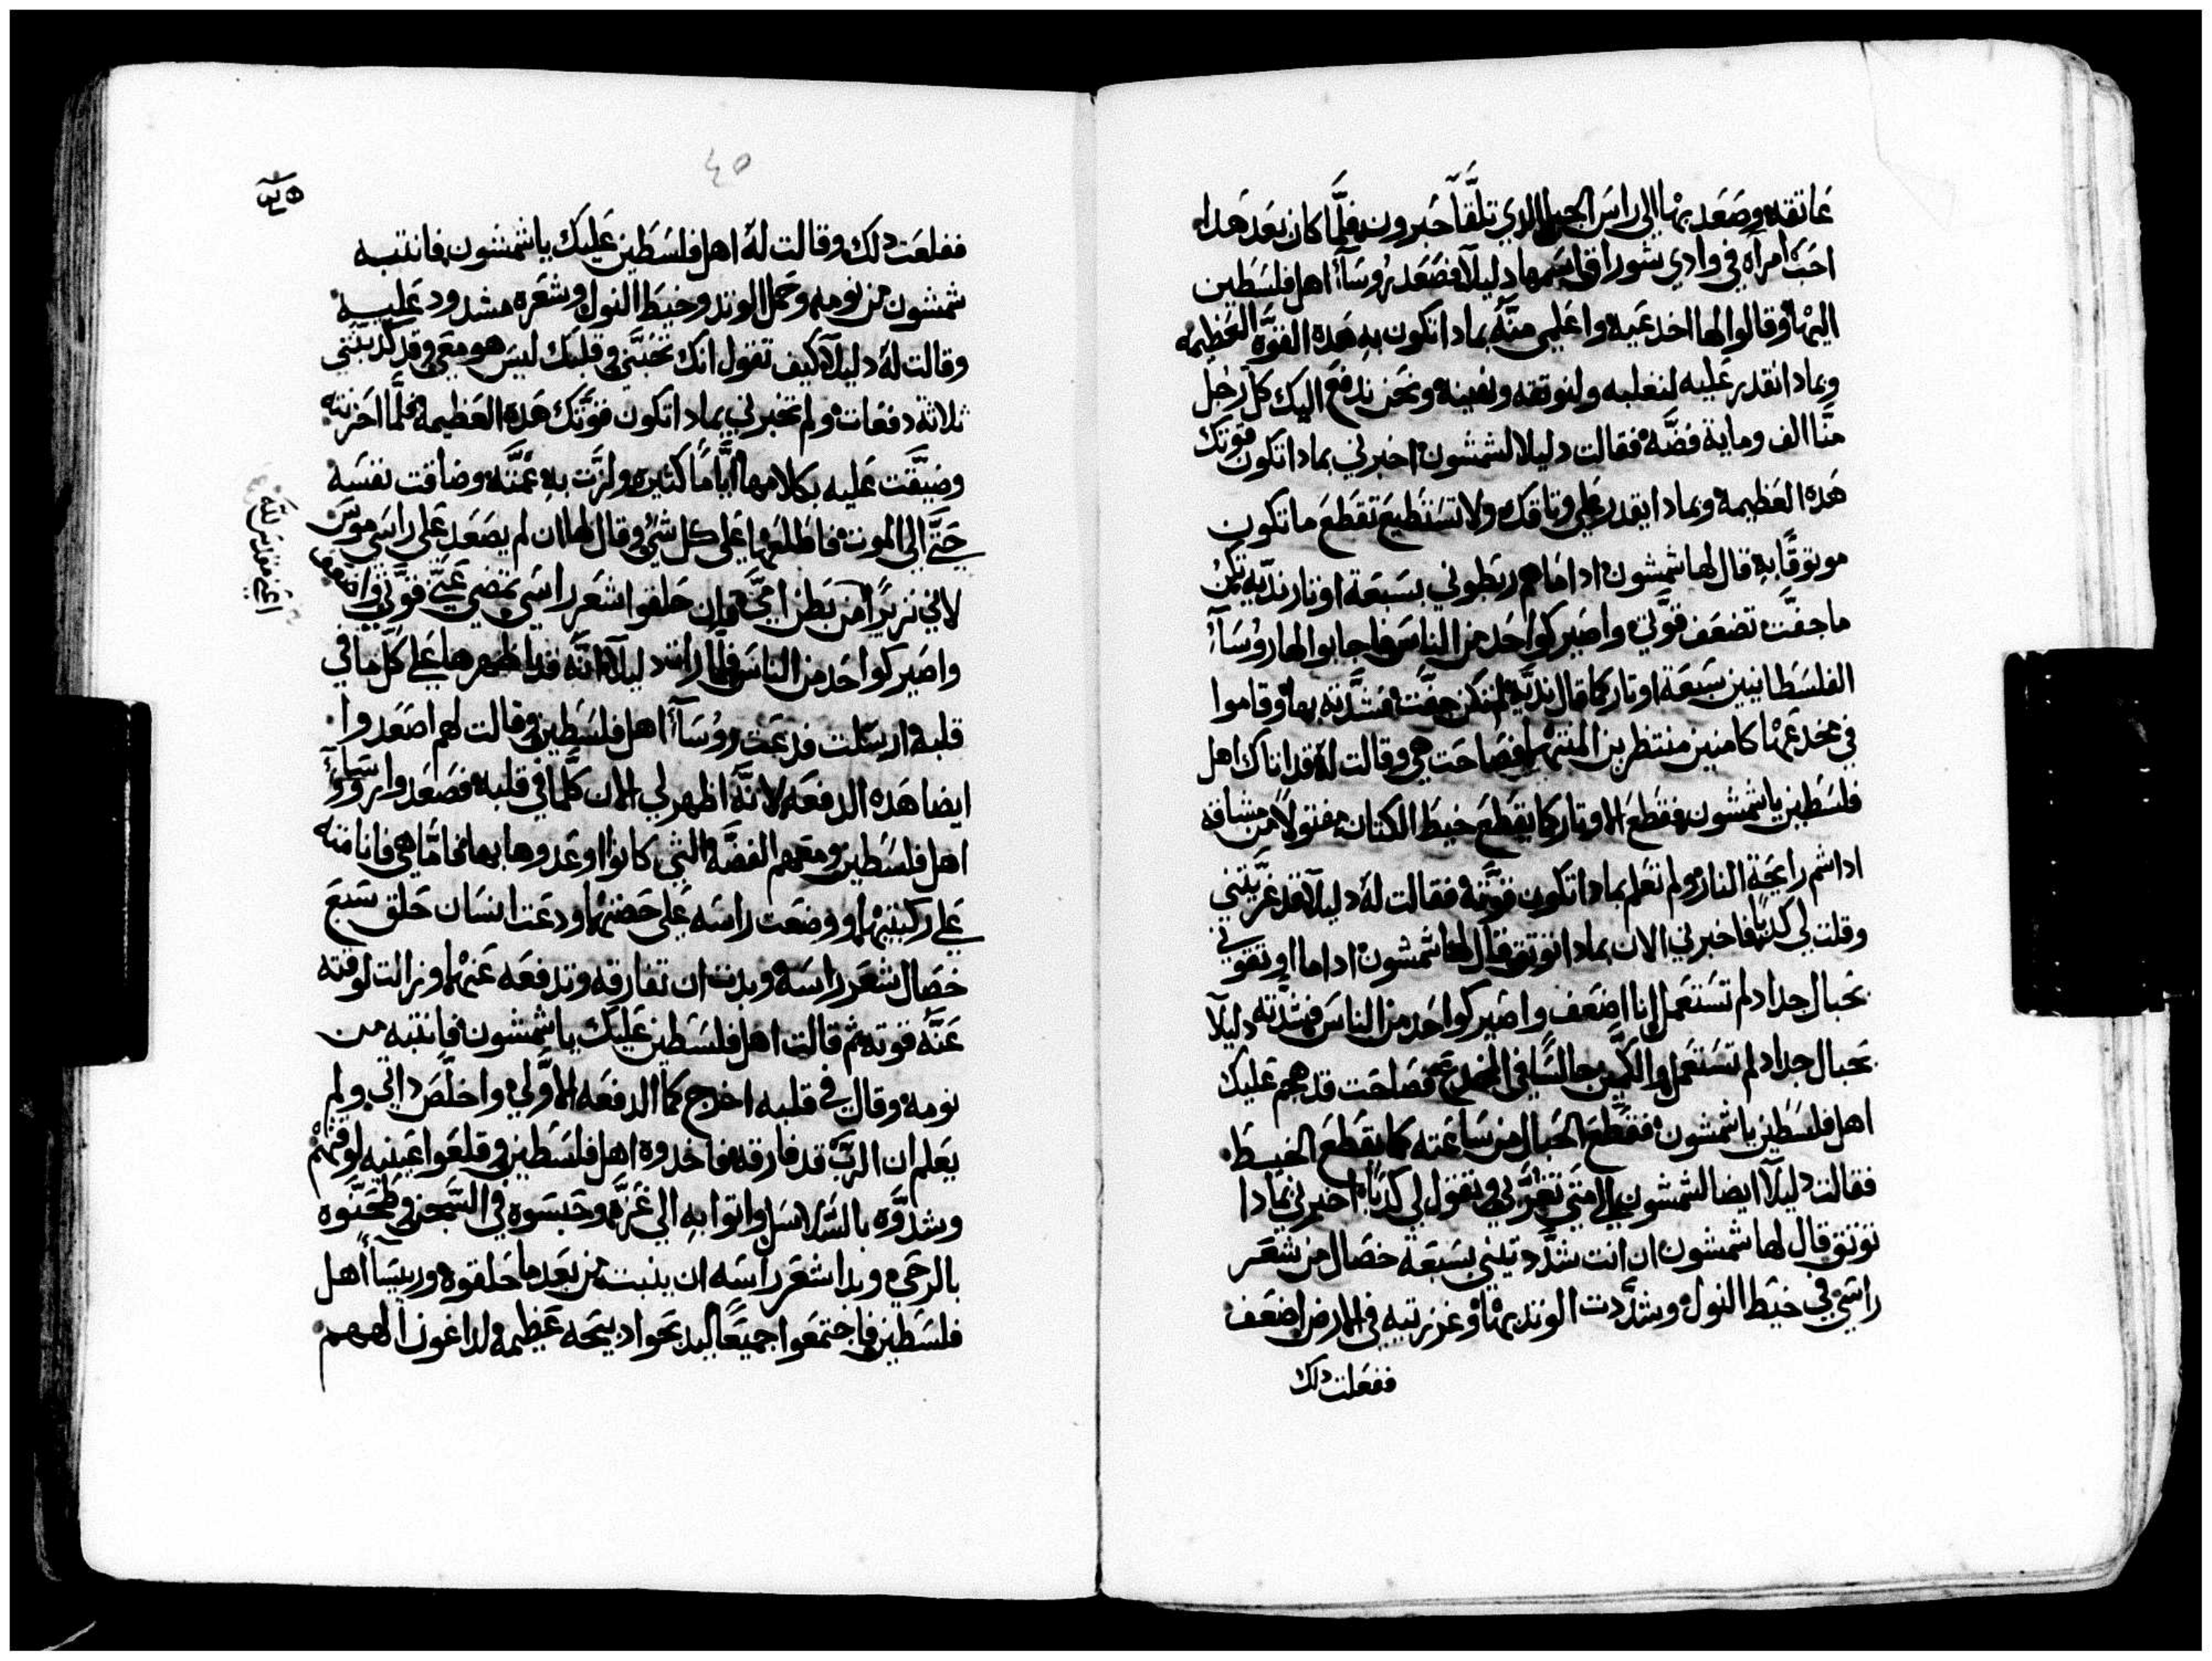 عاتقه وصعد بها الى راس الجبل الدي تلقا حبرون فلما كان بعد هدا
احب امراه في وادي شوراق اسمها دليلا فصعد روسآ اهل فلسطين
اليها وقالوا لها اخدعيه واعلمي منه بمادا تكون به هده القوه العظيمه
وبمادا نقدر عليه لنغلبه ولنوثقه ونعينه ونحن ندفع اليك كل رجل
منا الف ومايه فضه فقالت دليلا لشمشون اخبرني بمادا تكون قوتك
هده العظيمه وبمادا يقدر على وثاقك ولا تستطيع تقطع ما تكون
موثوقا به قال لها شمشون ادا ما هم ربطوني بسبعة اوتار نديه لم تكن
ما جفت تضعف قوتي واصير كواحد من الناس فاجابوا لها روسآ
الفلسطانيين سبعة اوتار كما قال نديه لم تكن جفت فشدته بها وقاموا
في مخدعها كامنين منتظرين المنتهى فصاحت هي وقالت له قد اتاك اهل
فلسطين يا شمشون فقطع الاوتار كما يقطع خيط الكتان مفتولا من مشاقه
ادا شم رايحة النار ولم تعلم بمادا تكون قوته فقالت له دليلا قد غريتني
وقلت لي كدبا فاخبرني الان بمادا توثق قال لها شمشون ادا ما اوثقوني
بحبال جداد لم تستعمل انا اضعف واصير كواحد من الناس فشدته دليلا
بحبال جداد لم تستعمل والكمين جالسا في المخدع فصاحت قد هجم عليك
اهل فلسطين يا شمشون فقطع الحبال من ساعته كما يقطع الخيط
فقالت دليلا ايضا لشمشون الى متى تغرني وتقول لي كدبا اخبرني بمادا
توثق قال لها شمشون ان انت شددتيني بسبعة خصال من شعر
راسي في خيط النول وشددت الوتد بها وغرزتيه في الارض اضعف
ففعلت دلك
٤٥
ففلعت دلك وقالت له اهل فلسطين عليك يا شمشون فانتبه
شمشون من نومه وحمل الوتد وخيط النول وشعره مشدود عليه
وقالت له دليلا كيف تقول انك تحبني وقلبك ليس هو معي وقد كدبتني
ثلاثة دفعات ولم تخبرني بمادا تكون قوتك هده العظيمه فلما احزنته
وضيقت عليه بكلامها اياما كثيره ولزت به عمته وضاقت نفسه
حتى الى الموت فاطلعها على كل شي وقال لها ان لم يصعد على راسي موس
لاني نزيرا من بطن امي فان حلقوا شعر راسي تمضي عني قوتي واضعف
واصير كواحد من الناس فلما رات دليلا انه قد اظهرها على كل ما في
قلبه ارسلت فدعت روسآ اهل فلسطين وقالت لهم اصعدوا
ايضا هده الدفعه لانه اظهر لي الان كلما في قلبه فصعدوا روسآ
اهل فلسطين ومعهم الفضه التي كانوا اوعدوها بها فاما هي فانامته
على ركبتيها ووضعت راسه على حضنها ودعت انسان حلق سبع
خصال شعر راسه وبدت ان تفارقه وتدفعه عنها وزالت لوقته
عنه قوته ثم قالت اهل فلسطين عليك يا شمشون فانتبه من
نومه وقال في قلبه اخرج كما الدفعه الاولي واخلص داتي ولم
يعلم ان الرب قد فارقه فاخدوه اهل فلسطين وقلعوا عينيه لوقتهم
وشدوه بالسلاسل واتوا به الى غزه وحبسوه في السجن وطحنوه
بالرحى وبدا شعر راسه ان ينبت من بعد ما حلقوه وريسآ اهل
فلسطين فاجتمعوا جميعا ليدبحوا دبيحه عظيمه لداغون الههم